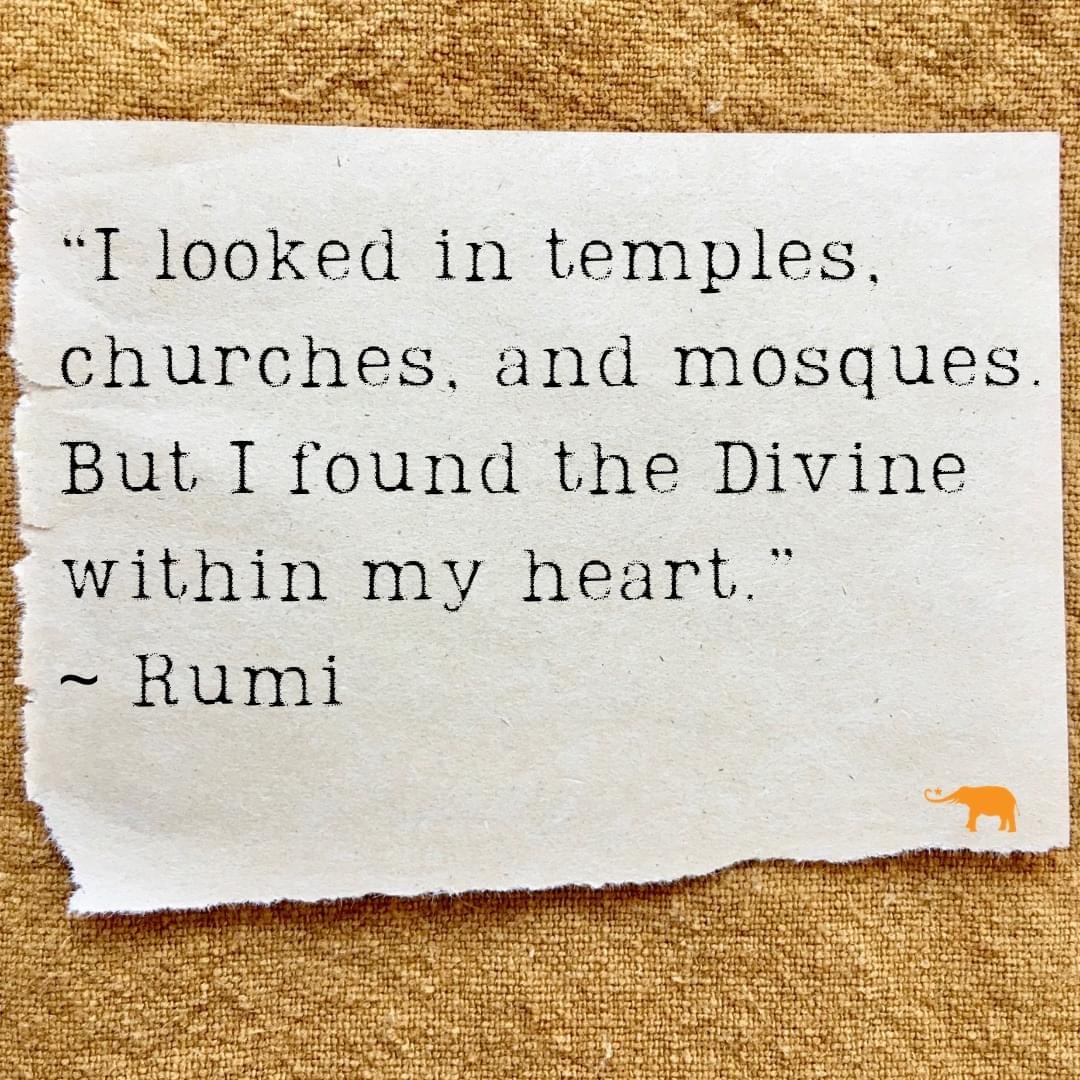 “I looked in temples,
churches, and mosques.
But I found the Divine
within my heart.”
~ Rumi